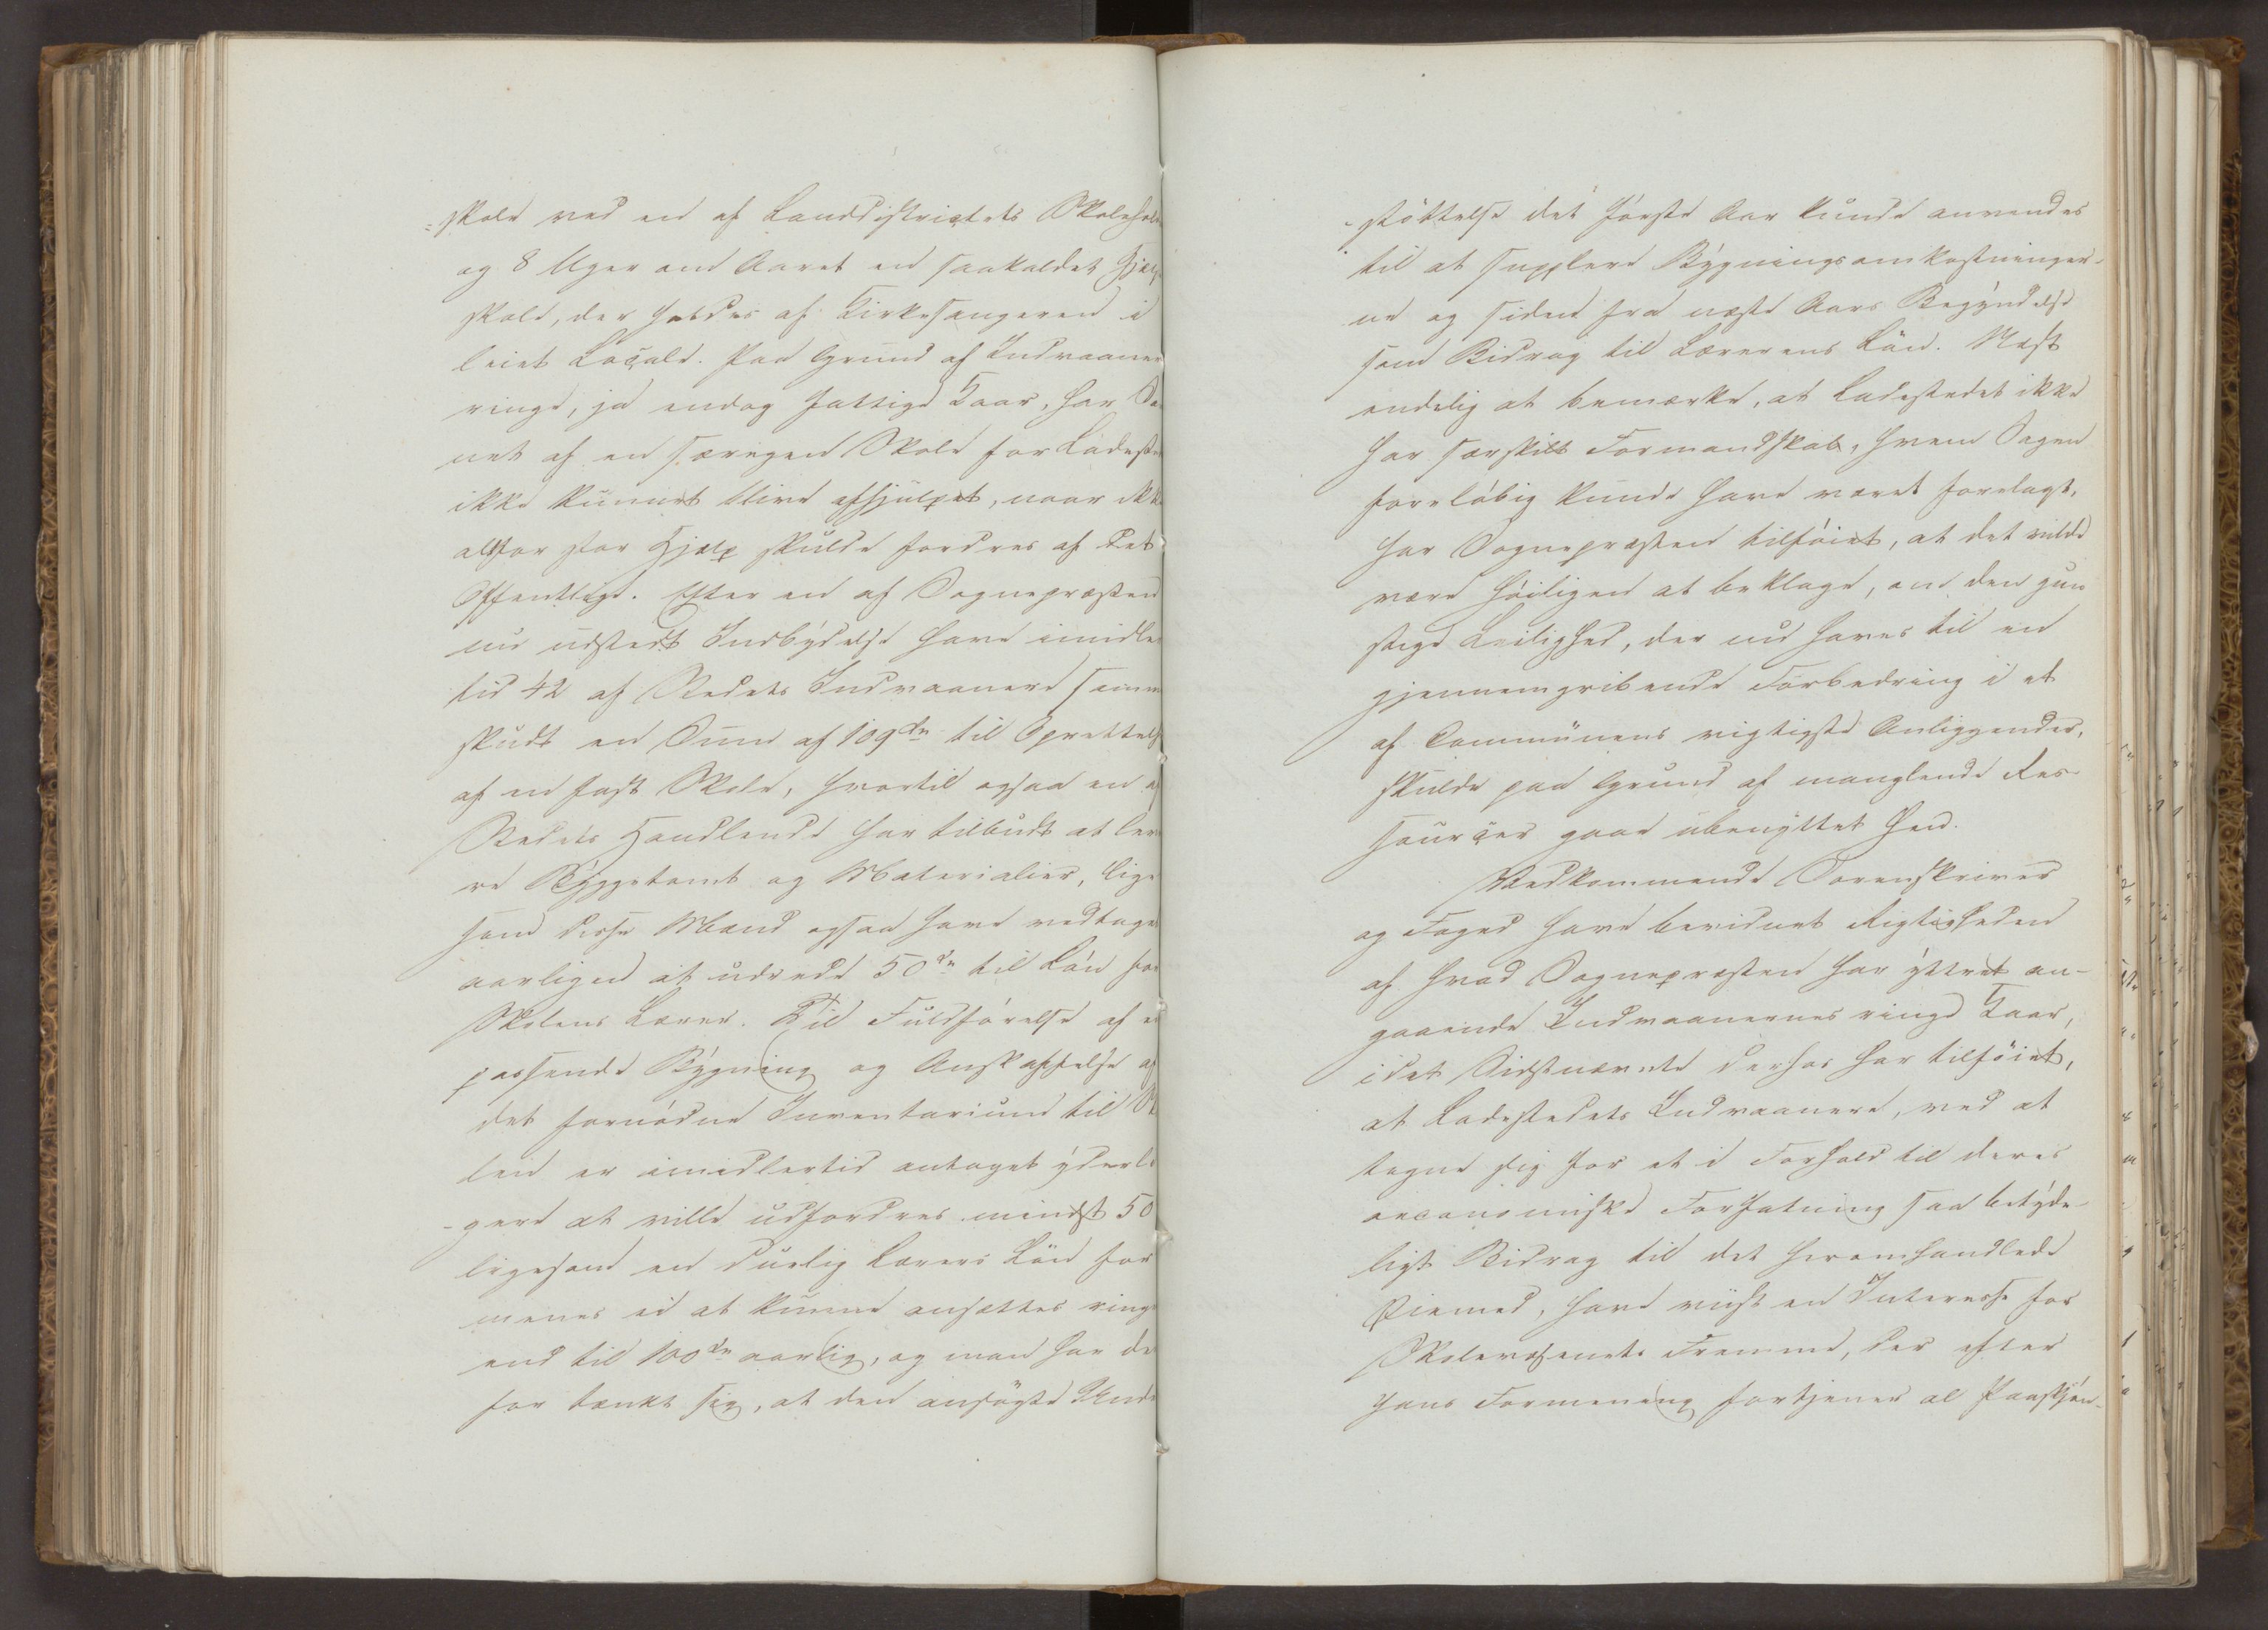 =skole ved en af Landdistrictets Skolehold
og 8 Uger om Aaret en saakaldet Hjælp
skole, der holdes af Kirkesangeren i
leiet Locale. Paa Grund af Indvaaner
ringe, ja endog fattige Kaar, har Sa
net af en særegen Skole for Ladeste
ikke kunnet blive afhjulpet, naar ikke
altfor stor Hjælp skulde fordres af det
Offentlige. Efter en af Sognepræsten
nu udstedt Indbydelse have imidler
tid 42 af Stedets Indvaanere samm
skudt en Sum af 109 dlr til Oprettels
af en fast Skole, hvortil ogsaa en af
Stedets Handlende har tilbudt at leve
re Byggetomt og Materialier, lige
som disse Mænd ogsaa have vedtaget
aarligen at udrede 50 dlr til Løn for
Skolens Lærer. Til Fuldførelse af en
passende Bygning og Anskaffelse af
det fornødne Inventarium til Sk
len er imidlertid antaget yderli
-gere at ville udfordres mindst 50
ligesom en duelig Lærers Løn for
menes ei at kunne ansættes ringe
end til 100 dlr aarlig, og man har der
for tænkt sig, at den ansøgte Unde
-støttelse det første Aar kunde anvendes
til at supplere Bygningsomkostninger-
ne og siden fra næste Aars Begyndelse
som Bidrag til Lærerens Løn. Næst
endelig at bemærke, at Ladestedet ikke
har særskilt Formandskab, hvem Sagen
foreløbig kunde have været forelagt,
har Sognepræsten tilføiet, at det vilde
være høiligen at beklage, om den gun
stige Leilighed, der nu haves til en
gjennemgribende Forbedring i et
af Communens vigtigste Anliggender,
skulde paa Grund af manglende Res-
sourcer gaae ubenyttet hen.
Vedkommende Sorenskriver
og Foged have bevidnet Rigtigheden
af hvad Sognepræsten har yttret an-
gaaende Indvaanernes ringe Kaar,
idet Sidstnævnte derhos har tilføiet,
at Ladestedets Indvaanere, ved at
tegne sig for et i Forhold til deres
oeconomiske Forfatning saa betyde-
ligt Bidrag til det heromhandlede
Øiemed, have viist en Interesse for
Skolevæsenets Fremme, der efter
hans Formening fortjener al Paaskjøn-